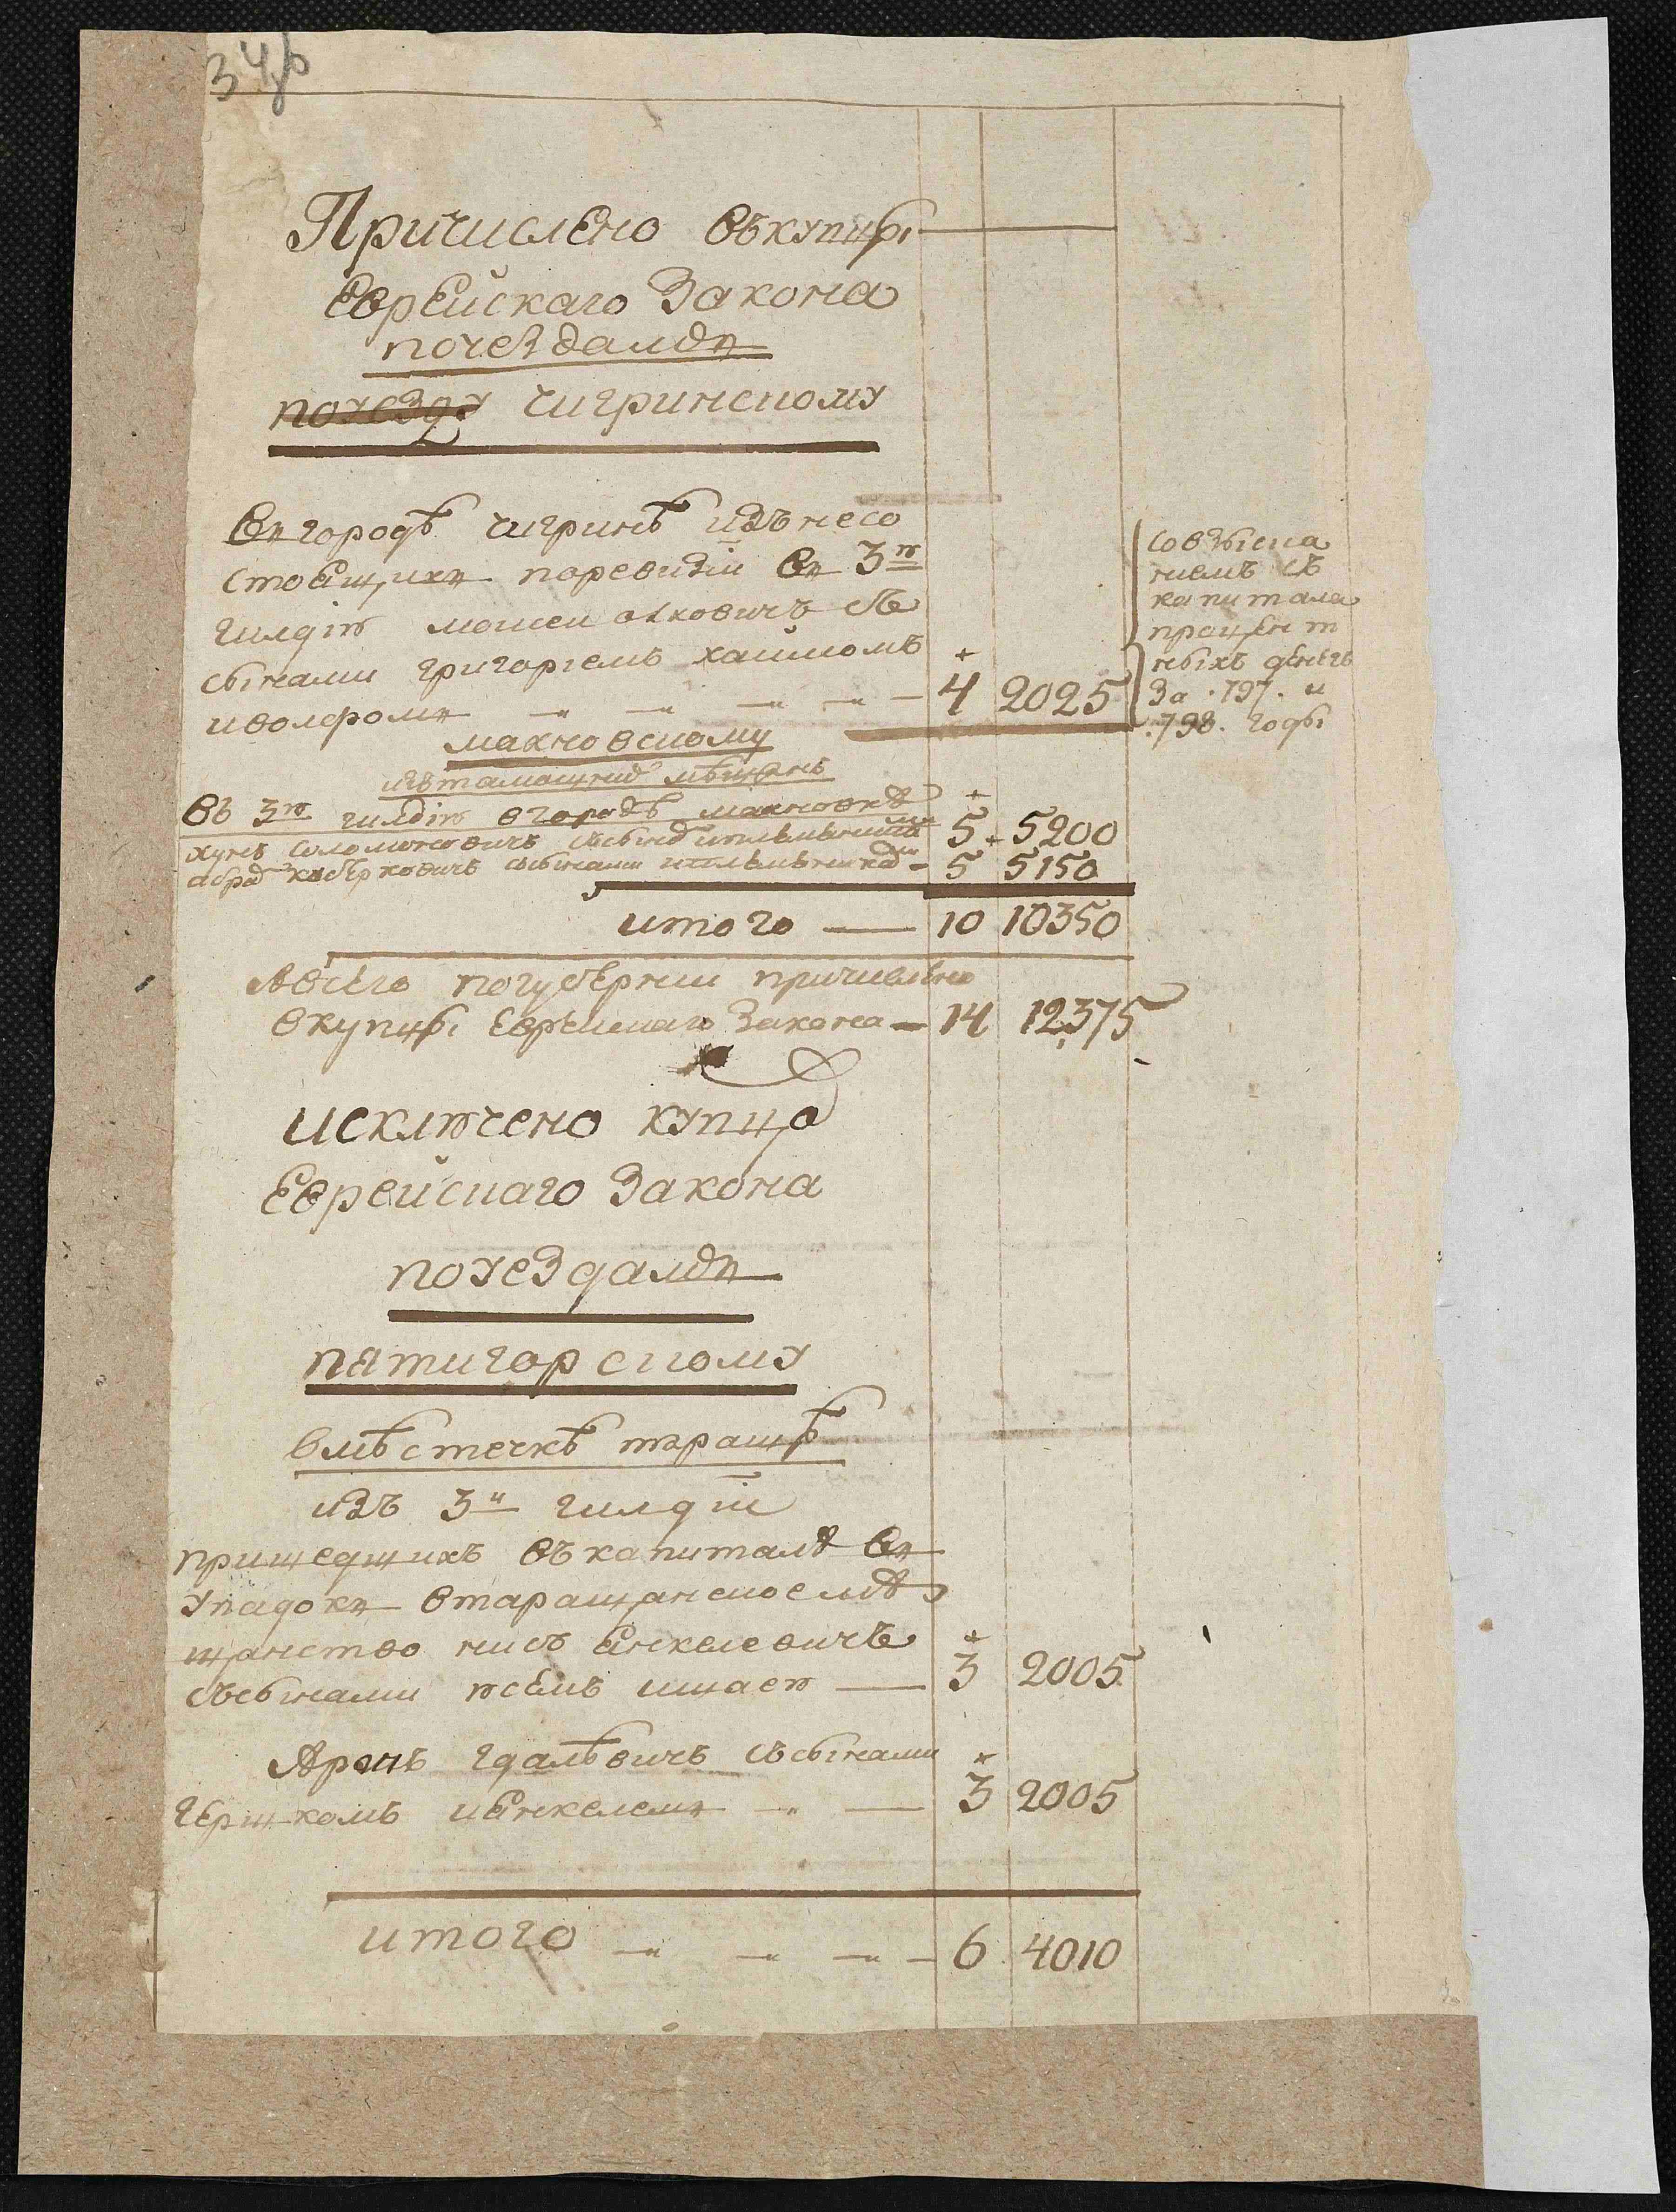 34б
Причислено въкупцы
Еврейскаго Закона
поуездамъ
поуезду чигринскому
въгородѣ чигринѣ изънесо
стоящихъ поревизіи въ 3ю
гилдію мошеи
сынами григоріемъ хаимомъ
иволфомъ — — — — 4 2025
совзыска
ниемъ съ
капитала
процент
ныхъ денегъ
За .797. и
.798. годы
махновскому
изътамошнихъ мѣщанъ
Въ 3ю гилдію вгородѣ махновкѣ
соломоновичъ 5 5200
сосынами 5 5150
итого — 10 10350
Авсего погубернии причислено
вкупцы Еврейскаго Закона — 14 12375
исключено купцо
Еврейскаго Закона
поуездамъ
пятигорскому
вмѣстечкѣ таращѣ
изъ 3й гилдіи
пришедшихъ въкапиталѣ въ
упадокъ втаращанское мѣ
щанство янкелевичъ
съсынами — 3 2005
Аронъ съсынами
гершкомъ иянкелемъ — — 3 2005
итого — — — — 6 4010